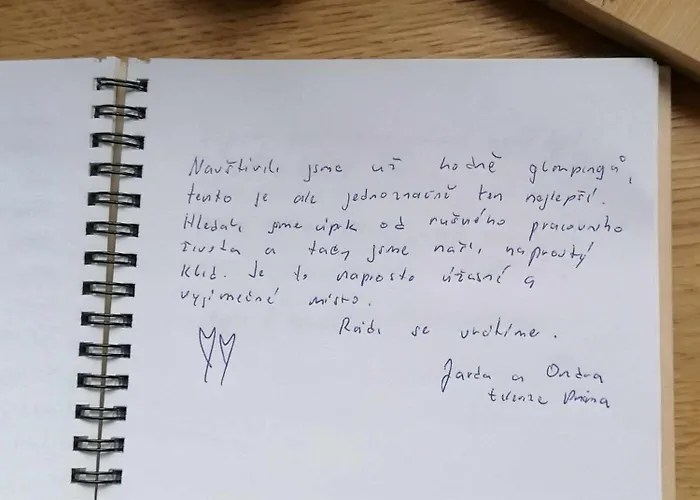 Navštívili jsme už hodně glampingů,
tento je ale jednoznačně ten nejlepší.
Hledali jsme útěk od rušného pracovního
života a tady jsme našli naprostý
klid. Je to naprosto úžasné a
vyjímečné místo.
Rádi se vrátíme.
Jarda a Ondra